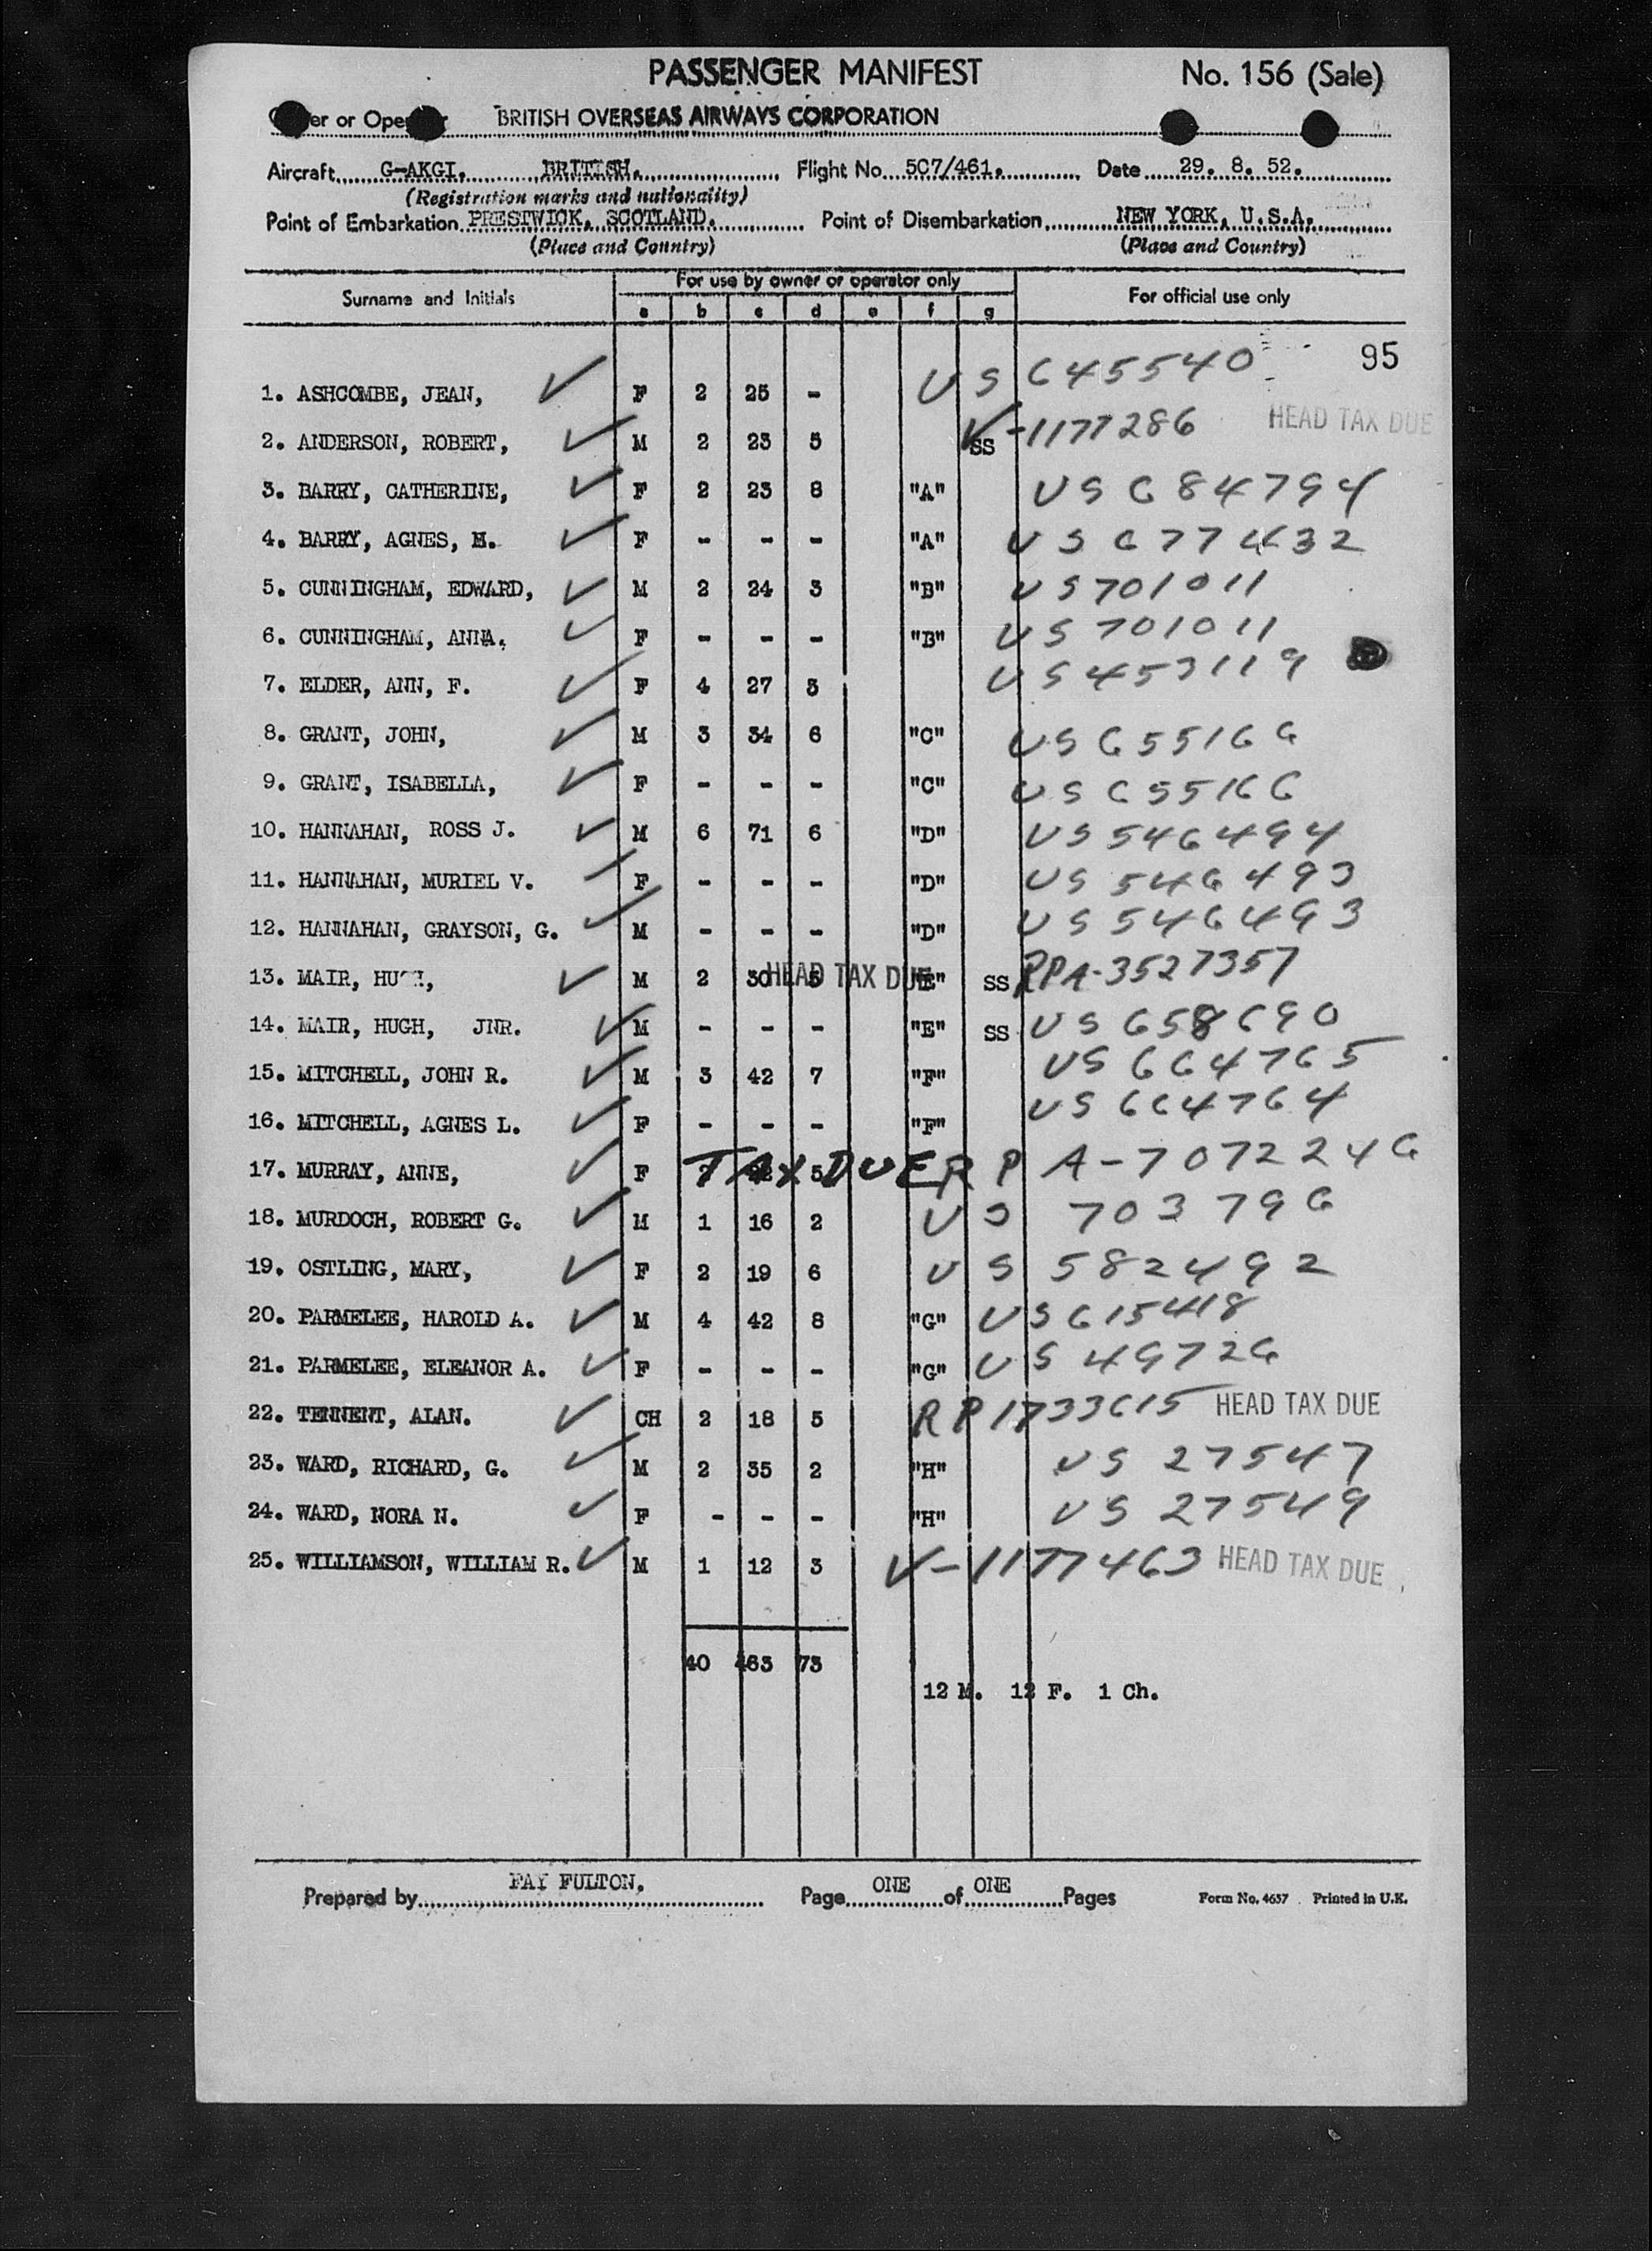 PASSENGER MANIFEST No. 156 (Sale)
er or Ope BRITISH OVERSEAS AIRWAYS CORPORATION
Aircraft G-AKGI. BRITISH. Flight No. 507/461. Date 29. 8. 52.
(Registration marks and nationality)
Point of Embarkation PRESTWICK, SCOTLAND. Point of Disembarkation NEW YORK, U.S.A.
(Place and Country) (Place and Country)
Surname and Initials For use by owner or operator only For official use only
a b c d e f g
95
1. ASHCOMBE, JEAN, F 2 25 - US 645540
2. ANDERSON, ROBERT, M 2 23 5 SS V-1177286 HEAD TAX DUE
3. BARRY, CATHERINE, F 2 23 8 "A" US 684794
4. BARRY, AGNES, M. F - - - "A" US 677432
5. CUNNINGHAM, EDWARD, M 2 24 3 "B" US 701011
6. CUNNINGHAM, ANNA. F - - - "B" US 701011
7. ELDER, ANN, F. F 4 27 3 US 453119
8. GRANT, JOHN, M 3 34 6 "C" US 655166
9. GRANT, ISABELLA, F - - - "C" US 655166
10. HANNAHAN, ROSS J. M 6 71 6 "D" US 546494
11. HANNAHAN, MURIEL V. F - - - "D" US 546493
12. HANNAHAN, GRAYSON, G. M - - - "D" US 546493
13. MAIR, HUGH, M 2 30 5 HEAD TAX DUE "E" SS RPA-3527357
14. MAIR, HUGH, JNR. M - - - "E" SS US 658690
15. MITCHELL, JOHN R. M 3 42 7 "F" US 664765
16. MITCHELL, AGNES L. F - - - "F" US 664764
17. MURRAY, ANNE, F 5 TAX DUE RP A-7072246
18. MURDOCH, ROBERT G. M 1 16 2 US 703796
19. OSTLING, MARY, F 2 19 6 US 582492
20. PARMELEE, HAROLD A. M 4 42 8 "G" US 615418
21. PARMELEE, ELEANOR A. F - - - "G" US 49726
22. TENNENT, ALAN. CH 2 18 5 RP 1733615 HEAD TAX DUE
23. WARD, RICHARD, G. M 2 35 2 "H" US 27547
24. WARD, NORA N. F - - - "H" US 27549
25. WILLIAMSON, WILLIAM R. M 1 12 3 V-1177463 HEAD TAX DUE
40 463 73
12 M. 12 F. 1 Ch.
Prepared by FAY FULTON. Page ONE of ONE Pages Form No. 4657 Printed in U.K.